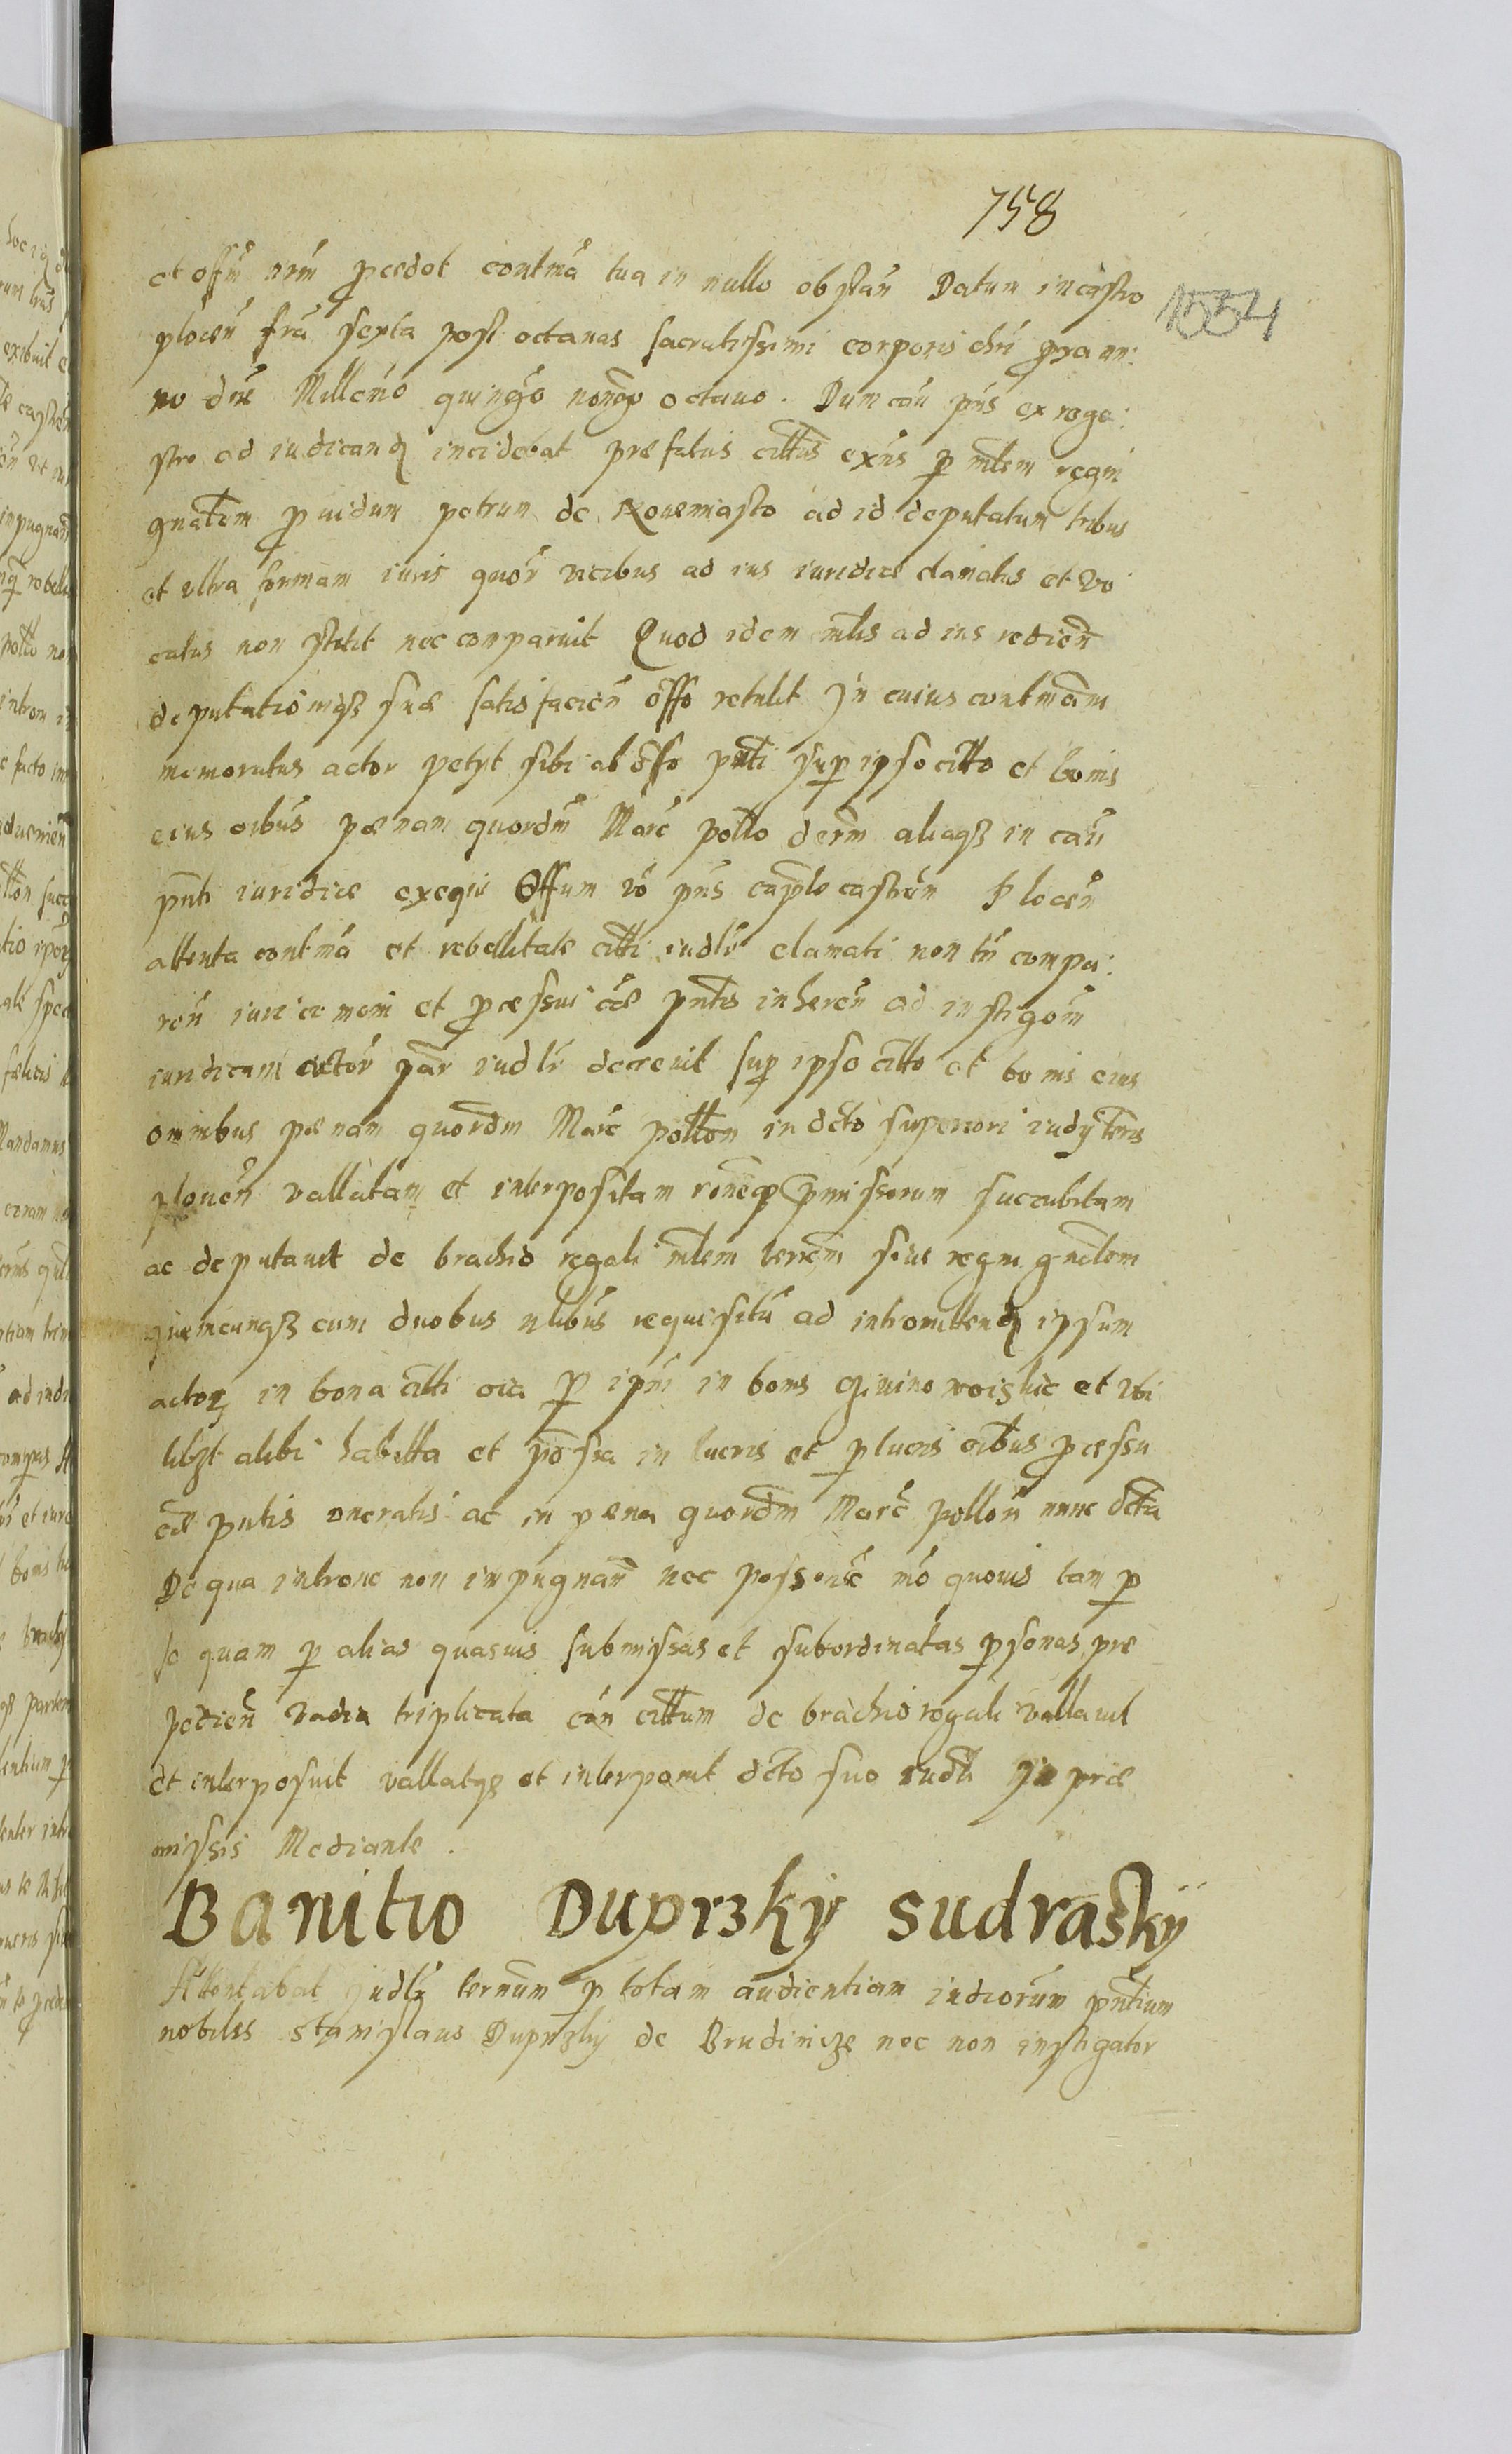 758
1554
et offm nrm procedet contma tua in nullo obstan Datum in castro
plocen fra sexta post octauas sacratissimi corporis chri pxa an:
no dni Millemo quingo nongo octauo. Dum cau pns ex rege:
stro ad iudicand incidebat prefatus cittus exns p mlem regni
gnalem prouidum petrum de Nouemiasto ad id deputatum tribus
et vltra formam iuris quor vicibus ad ius iuridice clamatus et vo
catus non stetit nec comparuit Quod idem mlis ad ius redien
deputationiqz suae satisfacien offo retulit In cuius contmciam
memoratus actor petyt sibi ab offo pnti sup ipso citto et bonis
eius oibus poenam quordm Marc pollo derm aliaqz in cau
pnti iuridice exequi Offum vo pns caple castren Plocen
attenta contma et rebellitate citti iudlr clamati non tn compa:
ren iurice moni et processui cae pntis inheren ad instigom
iuridicam actor par iudlr decreuit sup ipso citto et bonis eius
omnibus poenam quordm Marc pollon in dcto superiori iudy terris
plonen vallatam et interpositam roneqz pmissorum succubitam
ac deputauit de brachio regali mlem terrem siue regni gnalem
quemcunqz cum duobus nlibus requisitu ad intromittend ipsum
actorz in bona citti oia p ipm in bonis Gzinino woislic et vbi
libzt alibi habitta et possa in lucris et p lucris oibus processu
cae pntis oneratis ac in poena quordm Marc pollon nunc dcta
De qua introne non impugnan nec possonc mo quouis tam p
se quam p alias quasuis submissas et subordinatas psonas prae
pedien vadia triplicata con cittum de brachio regali vallauit
et interposuit vallatqz et interponit dcto suo iudli In prae
missis Mediante.
Banitio Duprzky sudrasky
Attentabat judlr ternum p totam audientiam indiorum pntium
nobilis Stanislaus Duprzky de Brudnicze nec non instigator